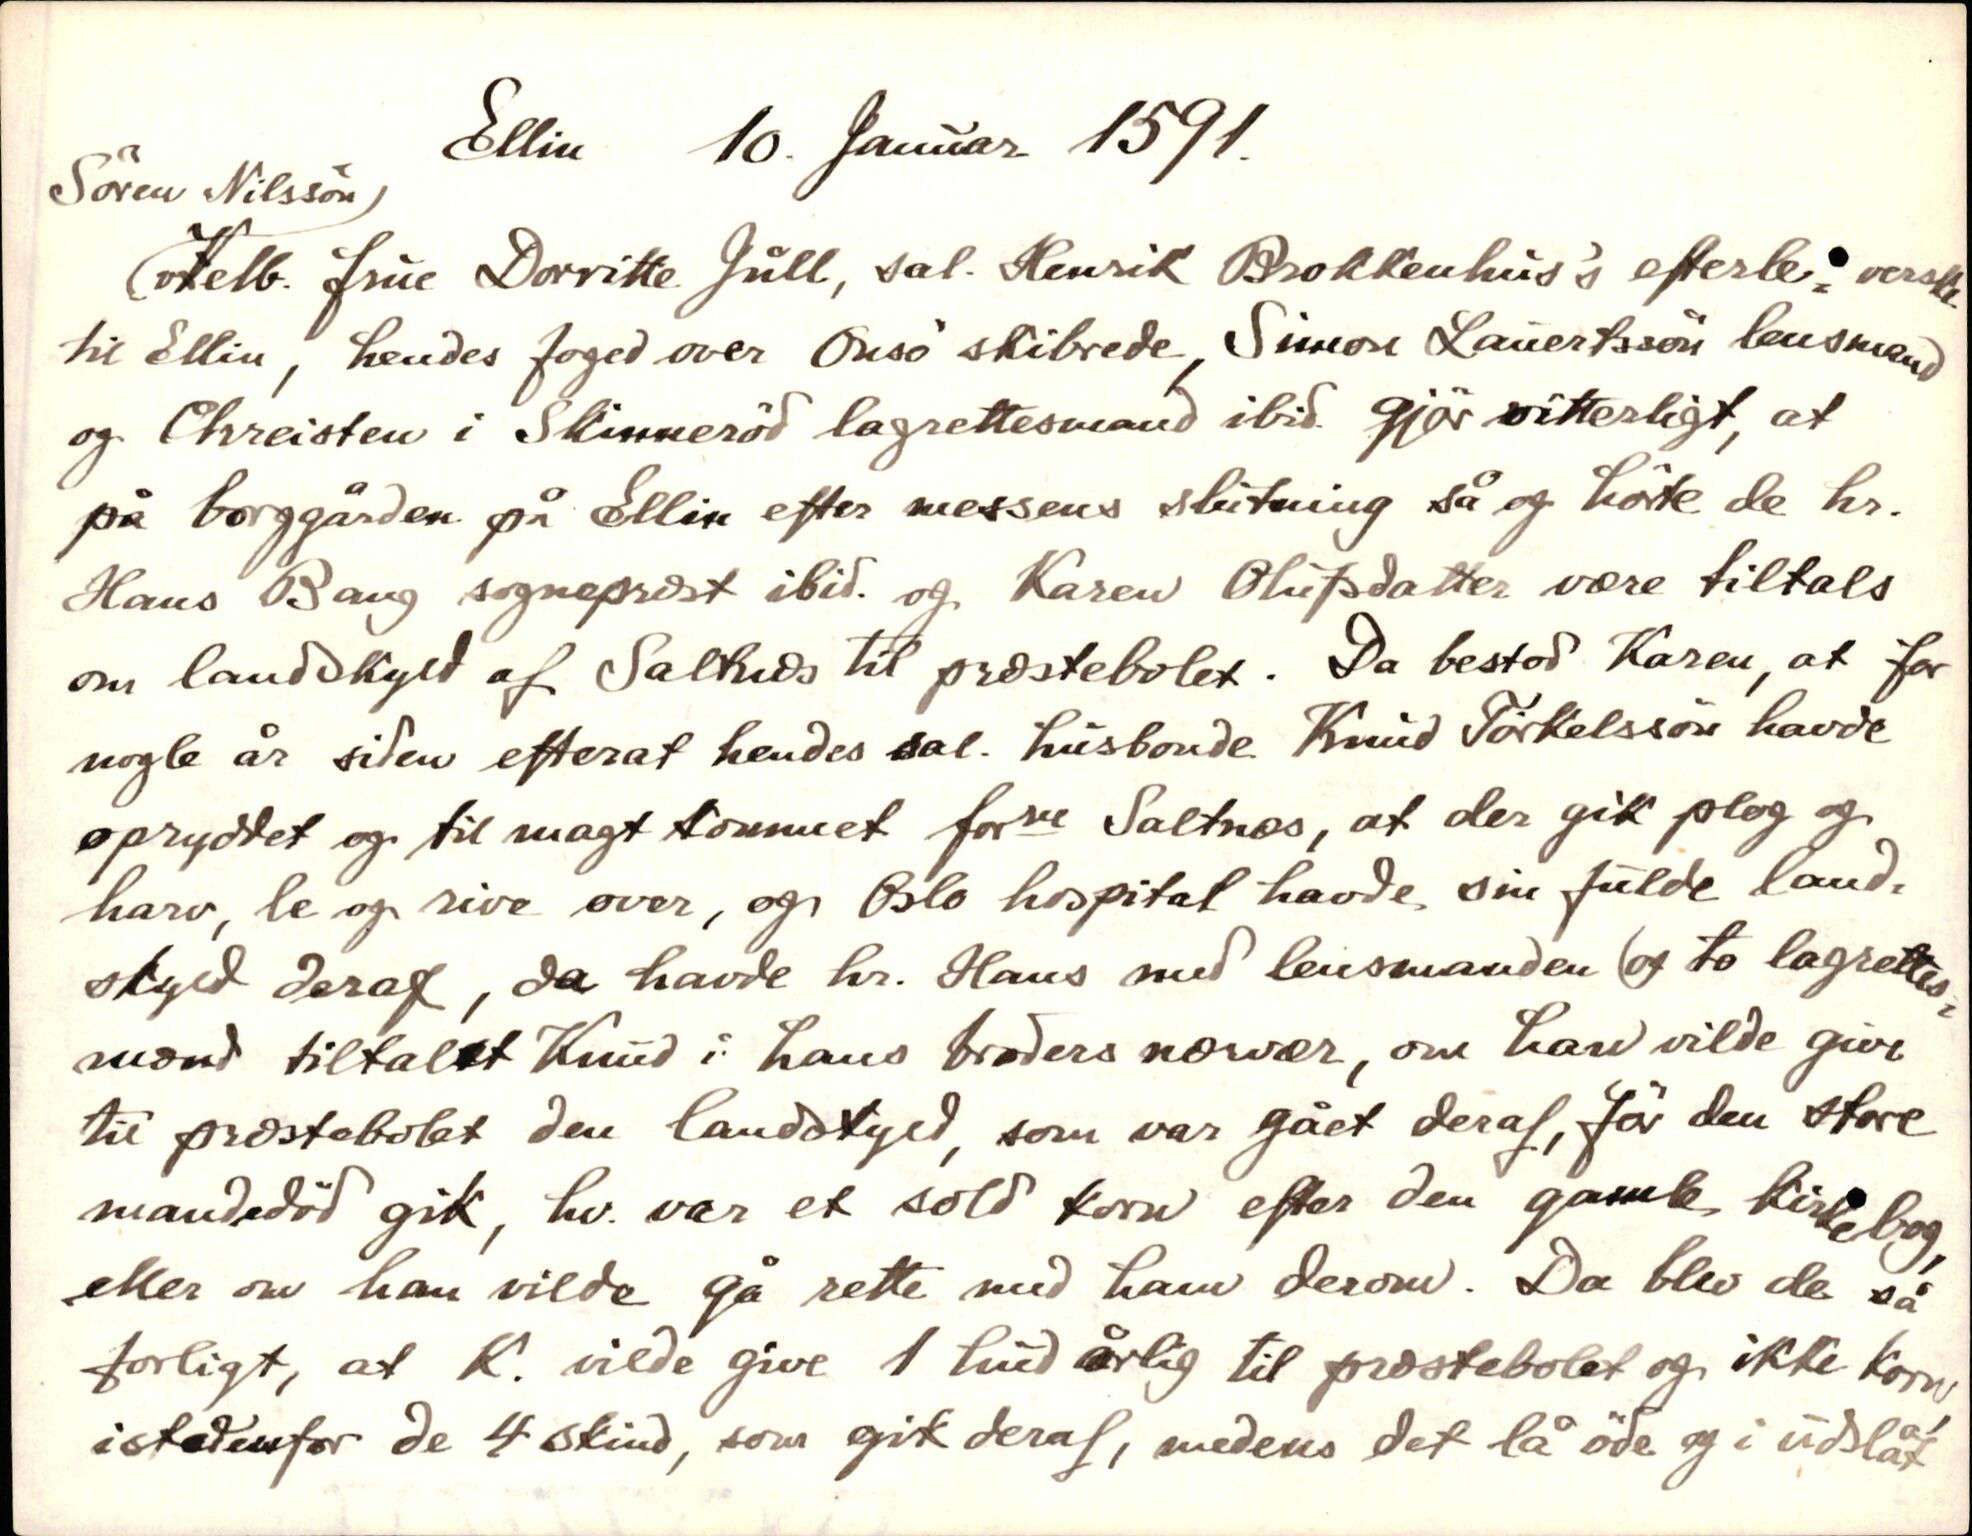 Ellin 10. Januar 1591.
Sören Nilssön,
velb. frue Dorritte Jull, sal. Henrik Brokkenhus's efterle= verske
til Ellin, hendes foged over Onsö skibrede, Simon Lauertssön lensmand
og Chreisten i Skinneröd lagrettesmand ibid. gjör vitterligt, at
på borggården på Ellin efter messens slutning så og hörte de hr.
Hans Bang sogneprest ibid. og Karen Olufsdatter være tiltals
om landskyld af Saltnæs til præstebolet. Da bestod Karen, at for
nogle år siden efterat hendes sal. husbonde Knud Törkelssön havde
opryddet og til magt kommet forne Saltnæs, at der gik plog og
harv, le og rive over, og Oslo hospital havde sin fulde land-
skyld deraf, da havde hr. Hans med lensmanden og to lagrettes=
mænd tiltalet Knud i hans broders nærvær, om han vilde give
til præstebolet den landskyld, som var gået deraf, för den store
mandedöd gik, hv. var et sold korn efter den gamle kirkebog,
eller om han vilde gå rette med ham derom. Da blev de så
forligt, at K. vilde give 1 hud årlig til præstebolet og ikke korn
istedenfor de 4 skind, som gik deraf, medens det lå öde og i udslåt